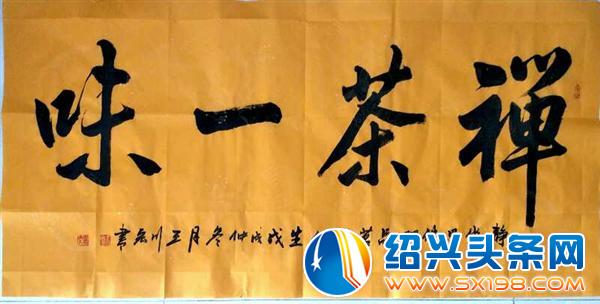 禅茶一味
静 品 生戊戌仲冬月王川 書
绍兴头条网
WWW.SX198.COM